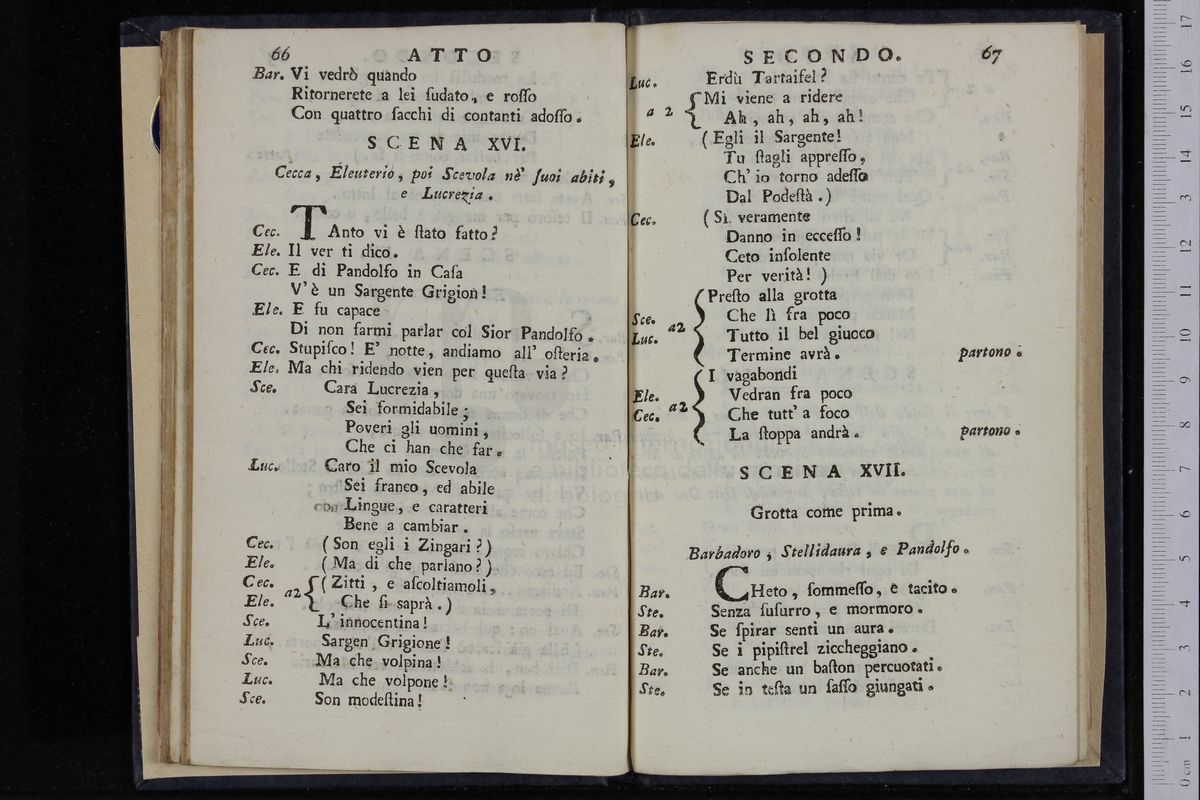 66 ATTO
Bar. Vi vedrò quando
Ritornerete a lei ſudato, e roſſo
Con quattro ſacchi di contanti adoſſo.
SCENA XVI.
Cecca, Eleuterio, poi Scevola nè' ſuoi abiti,
e Lucrezia.
Cec. TAnto vi è ſtato fatto?
Ele. Il ver ti dico.
Cec. E di Pandolfo in Caſa
V'è un Sargente Grigion!
Ele. E fu capace
Di non farmi parlar col Sior Pandolfo.
Cec. Stupiſco! E' notte, andiamo all' oſteria.
Ele. Ma chi ridendo vien per queſta via?
Sce. Cara Lucrezia,
Sei formidabile;
Poveri gli uomini,
Che ci han che far.
Luc. Caro il mio Scevola
Sei franco, ed abile
Lingue, e caratteri
Bene a cambiar.
Cec. (Son egli i Zingari?)
Ele. (Ma di che parlano?)
Cec. Ele. a2 { (Zitti, e aſcoltiamoli,
Che ſi saprà.)
Sce. L'innocentina!
Luc. Sargen Grigione!
Sce. Ma che volpina!
Luc. Ma che volpone!
Sce. Son modeſtina!
SECONDO. 67
Luc. Erdù Tartaifel?
a 2 { Mi viene a ridere
Ah, ah, ah, ah!
Ele. (Egli il Sargente!
Tu ſtagli appreſſo,
Ch' io torno adeſſo
Dal Podeſtà.)
Cec. (Sì veramente
Danno in ecceſſo!
Ceto inſolente
Per verità!)
Sce. Luc. a2 { Preſto alla grotta
Che lì fra poco
Tutto il bel giuoco
Termine avrà. partono.
Ele. Cec. a2 { I vagabondi
Vedran fra poco
Che tutt' a foco
La ſtoppa andrà. partono.
SCENA XVII.
Grotta come prima.
Barbadoro, Stellidaura, e Pandolfo.
Bar. CHeto, ſommeſſo, e tacito.
Ste. Senza ſuſurro, e mormoro.
Bar. Se ſpirar senti un aura.
Ste. Se i pipiſtrel ziccheggiano.
Bar. Se anche un baſton percuotati.
Ste. Se in teſta un ſaſſo giungati.
0 cm 1 2 3 4 5 6 7 8 9 10 11 12 13 14 15 16 17